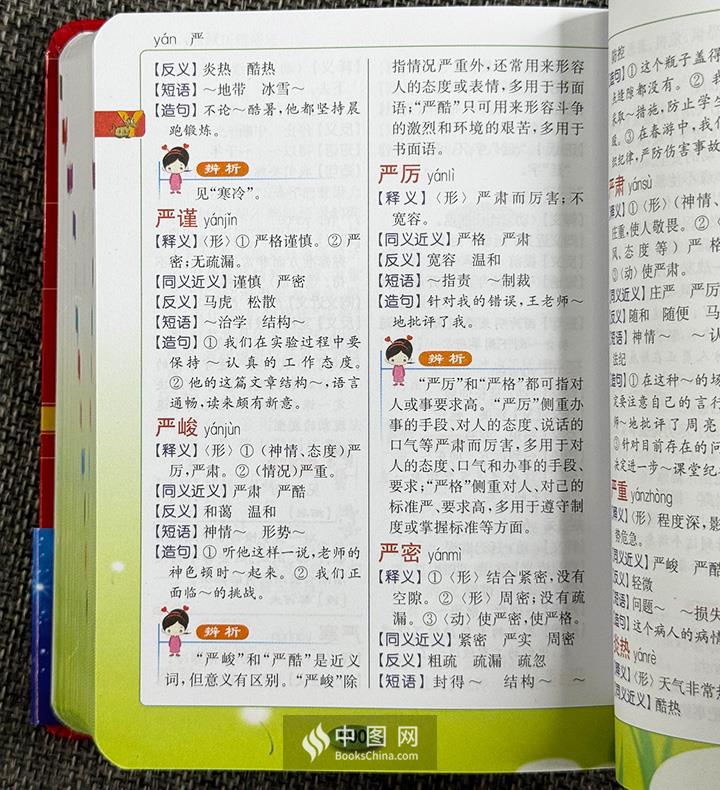 yán 严
【反义】炎热 酷热
【短语】～地带 冰雪～
【造句】不论～酷暑，他都坚持晨
跑锻炼。
辨析
见“寒冷”。
严谨 yánjǐn
【释义】〈形〉① 严格谨慎。② 严
密；无疏漏。
【同义近义】谨慎 严密
【反义】马虎 松散
【短语】～治学 结构～
【造句】① 我们在实验过程中要
保持～认真的工作态度。
② 他的这篇文章结构～，语言
通畅，读来颇有新意。
严峻 yánjùn
【释义】〈形〉①（神情、态度）严
厉，严肃。②（情况）严重。
【同义近义】严肃 严酷
【反义】和蔼 温和
【短语】神情～ 形势～
【造句】① 听他这样一说，老师的
神色顿时～起来。② 我们正
面临～的挑战。
辨析
“严峻”和“严酷”是近义
词，但意义有区别。“严峻”除
指情况严重外，还常用来形容
人的态度或表情，多用于书面
语；“严酷”只可用来形容斗争
的激烈和环境的艰苦，多用于
书面语。
严厉 yánlì
【释义】〈形〉严肃而厉害；不
宽容。
【同义近义】严格 严肃
【反义】宽容 温和
【短语】～指责 ～制裁
【造句】针对我的错误，王老师～
地批评了我。
辨析
“严厉”和“严格”都可指对
人或事要求高。“严厉”侧重办
事的手段、对人的态度、说话的
口气等严肃而厉害，多用于对
人的态度、口气和办事的手段、
要求；“严格”侧重对人、对己的
标准严、要求高，多用于遵守制
度或掌握标准等方面。
严密 yánmì
【释义】①〈形〉结合紧密，没有
空隙。②〈形〉周密；没有疏
漏。③〈动〉使严密，使严格。
【同义近义】紧密 严实 周密
【反义】粗疏 疏漏 疏忽
【短语】封得～ 结构～ ～
防控
【造句】① 这个瓶子盖得
点缝隙都没有。② 我
采取～措施，防止学生
③ 在春游中，我们
织纪律，严防伤害事故
严肃 yánsù
【释义】①〈形〉（神情、
庄重，使人敬畏。②〈
风、态度等）严格
③〈动〉使严肃。
【同义近义】庄严 严厉
【反义】随和 随便 马
【短语】神情～ ～认
法纪
【造句】① 在这种～的场
定要注意自己的言行
师～地批评了周亮
③ 针对目前存在的问
决定进一步～课堂纪
严重 yánzhòng
【释义】〈形〉程度深，影
势危急。
【同义近义】严峻 严酷
【反义】轻微
【短语】问题～ ～损失
【造句】这个病人的病情
炎热 yánrè
【释义】〈形〉天气非常热
【同义近义】酷热
中图网
BooksChina.com